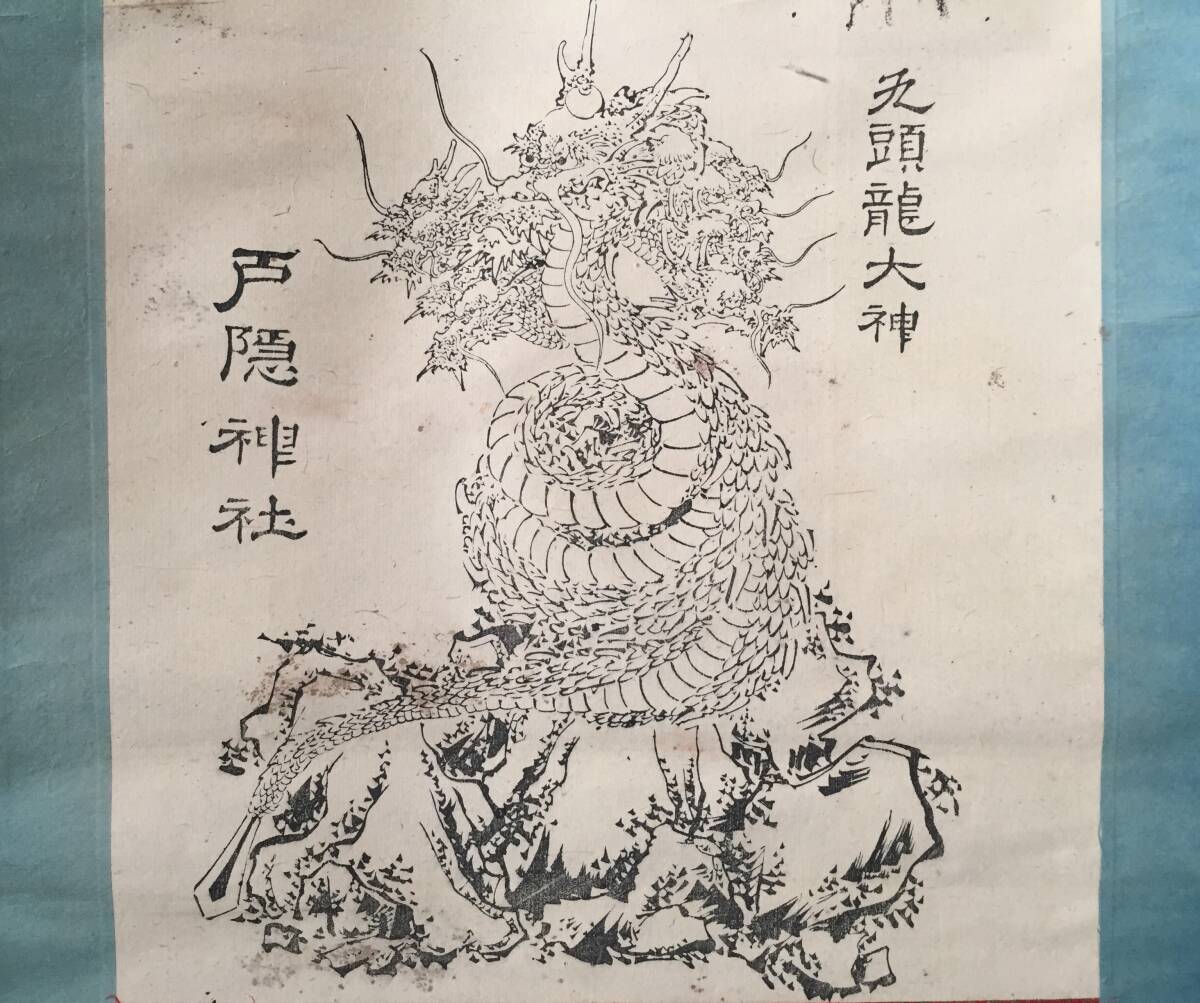 九頭龍大神
戸隠神社